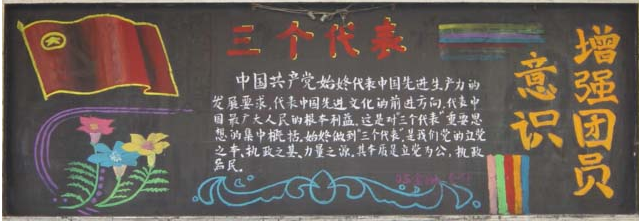 三个代表
中国共产党始终代表中国先进生产力的
发展要求,代表中国先进文化的前进方向,代表中
国最广大人民的根本利益。这是对"三个代表"重要思
想的集中概括。始终做到"三个代表"是我们党的立党
之本,执政之基,力量之源。其本质是立党为公,执政
为民。
增强团员
意识